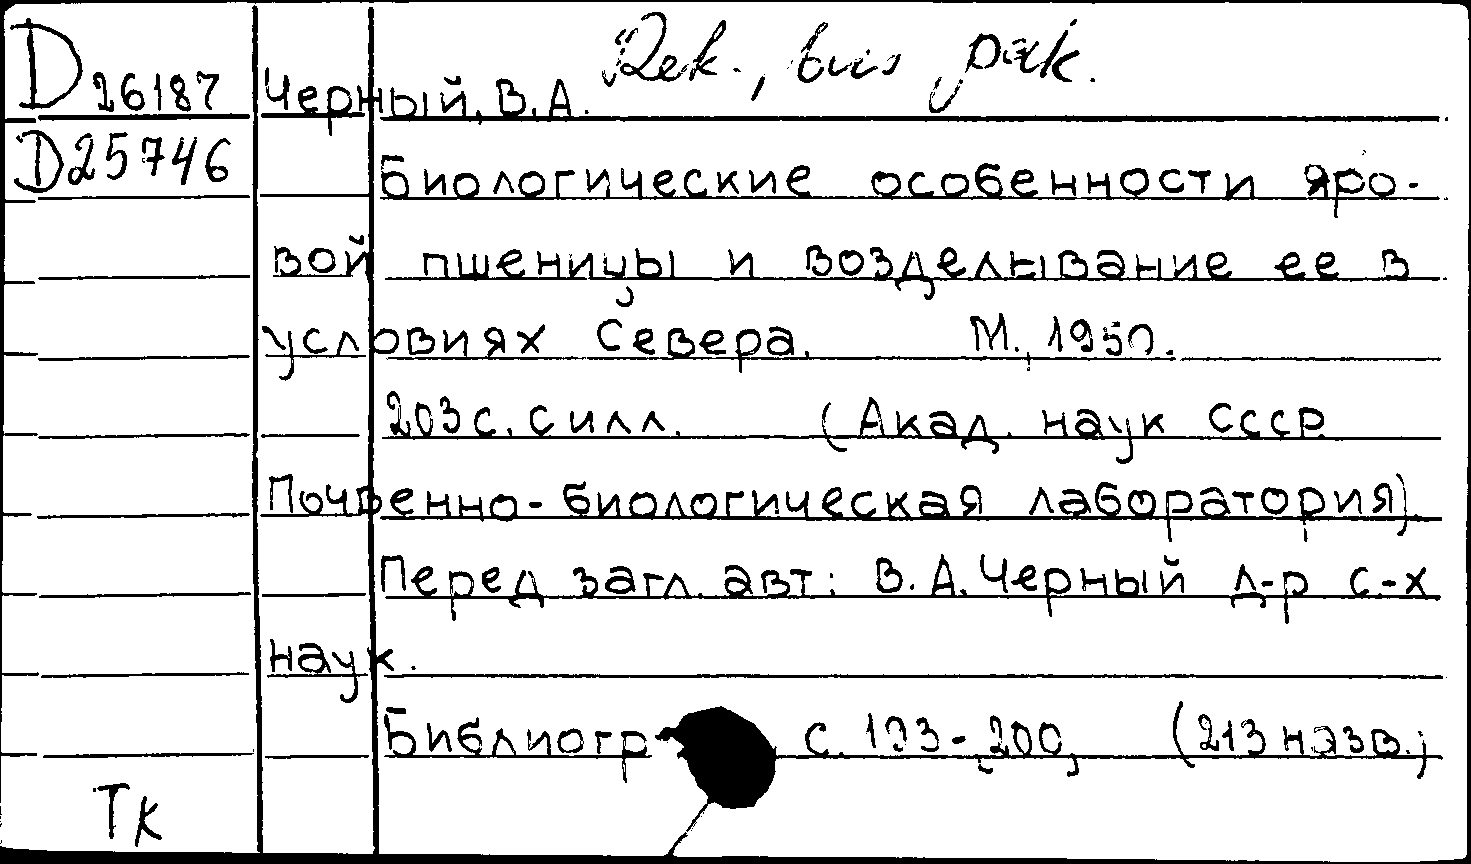 Rek., bus pak.
D 26187 Черный, В.А.
D25746
Биологические особенности яро-
вой пшеницы и возделывание ее в
условиях Севера. М., 1950.
203 с. с илл. (Акад. наук СССР
Почвенно-биологическая лаборатория).
Перед загл. авт: В.А.Черный д-р с.-х
наук.
Библиогр с. 193-200, (213 назв.)
Тк